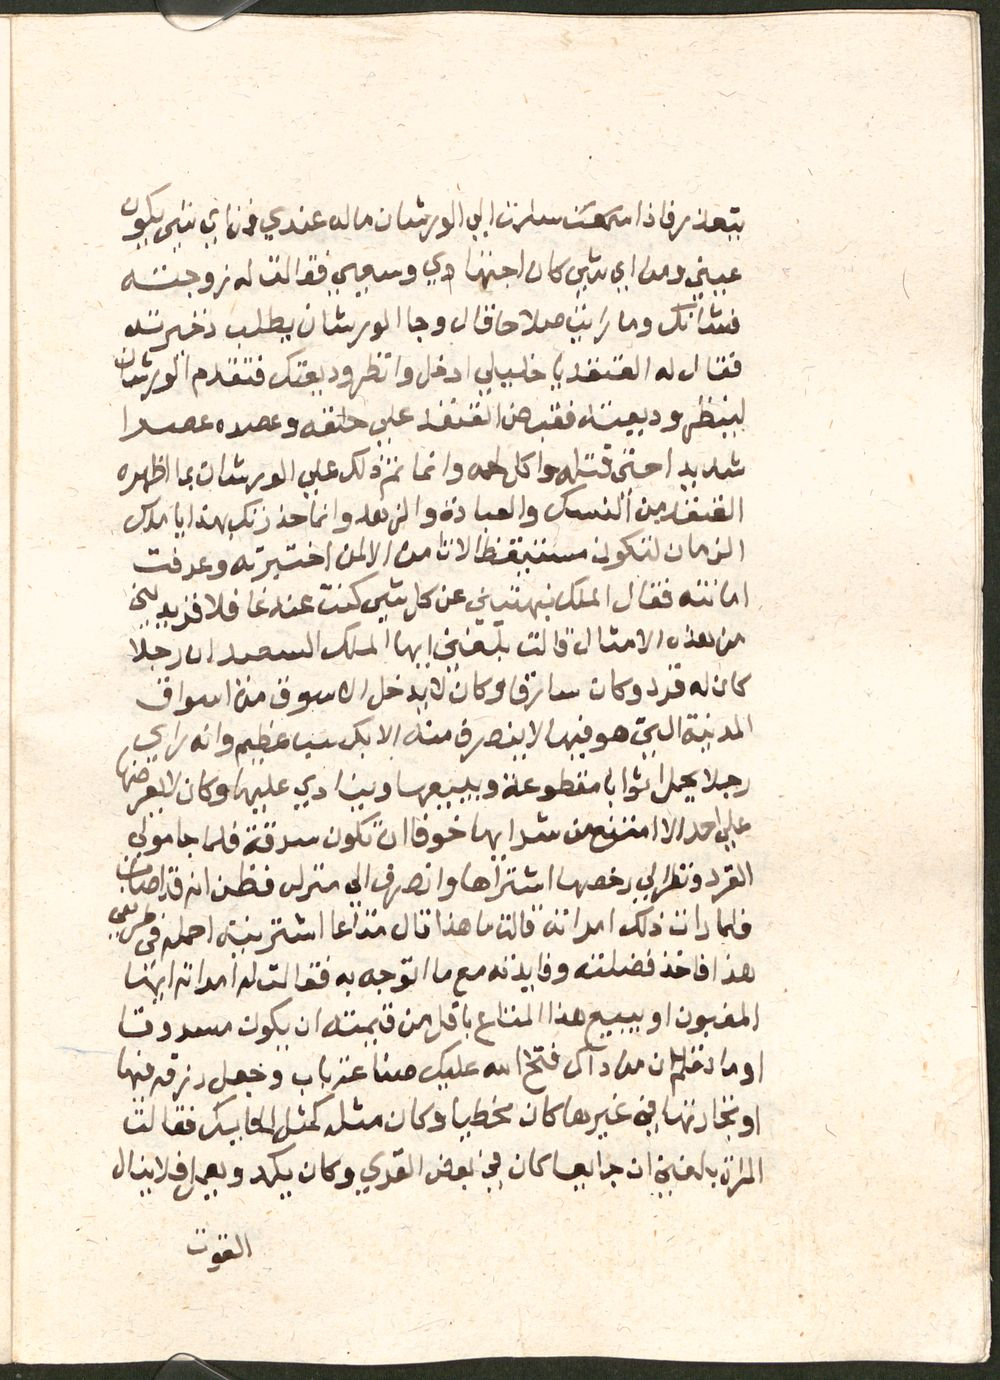 يتعذر فاذا سلمت الي الورشان ماله عندي فباي شي يكون
عيشي ومن اي شي كان اجتهادي وسعيي فقالت له زوجته
فشانك وما رايت صلاحا قال وجا الورشان يطلب ذخيرته
فقال له القنفد يا خليلي ادخل وانظر وديعتك فتقدم الورشان
لينظر وديعته فقبض القنفد علي حلقه وعصره عصرا
شديدا حتي قتله واكل لحمه وانما تم ذلك علي الورشان بما اظهره
القنفد من النسك والعبادة والزهد وانما حذرتك بهذا يا ملك
الزمان لتكون مستيقظا لا تامن الا لمن اختبرته وعرفت
امانته فقال الملك نبهتيني عن كل شي كنت عنه غافلا فزيديني
من هذه الامثال قالت بلغني ايها الملك السعيد ان رجلا
كان له قرد وكان سارقا وكان لا يدخل الا سوق من اسواق
المدينة التي هو فيها لا ينصرف منه الا بكسب عظيم وانه راي
رجلا يحمل اثوابا مقطوعة ويبيعها وينادي عليها وكان لا يعرضها
علي احد الا امتنع من شرايها خوفا ان تكون سرقة فلما جا مولي
القرد ونظر الي رخصها اشتراها وانصرف الي منزله فظن انه قد اصاب
فلما رات ذلك امراته قالت ما هذا قال متاعا اشتريته احمله في طريقي
هذا فاخذ فضلته وفايدته مع ما اتوجه به فقالت له امراته ايها
المغبون او يبيع هذا المتاع باقل من قيمته ان يكون مسروقا
او ما تعلم ان من دالك فتح الله عليك من باب وجعل رزقه فيها
او تجارتها في غيرها كان مخطيا وكان مثله كمثل الحايك فقالت
المراة بلغني ان حايكا كان في بعض القري وكان يكد ويعمل فلا ينال
القوت